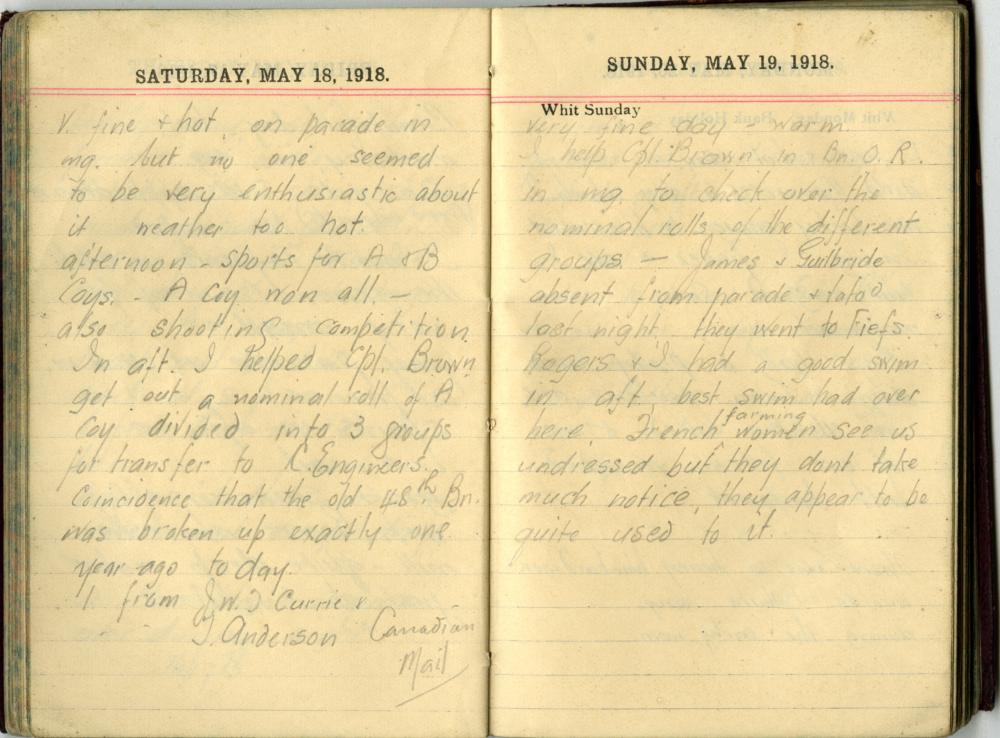 SATURDAY, MAY 18, 1918.
V. fine & hot, on parade in
mg. but no one seemed
to be very enthusiastic about
it weather too hot.
afternoon - sports for A & B
Coys. - A Coy won all. -
also shooting competition.
In aft. I helped Cpl. Brown
get out a nominal roll of A
Coy divided into 3 groups
for transfer to C. Engineers.
Coincidence that the old 48th Bn.
was broken up exactly one
year ago to day.
1 from J.W.J Currie &
J. Anderson Canadian
Mail
SUNDAY, MAY 19, 1918.
Whit Sunday
very fine day - warm.
I help Cpl. Brown in Bn. O. R.
in mg. to check over the
nominal rolls of the different
groups. - James & Guilbride
absent from parade &
last night, they went to Fiefs.
Rogers & I had a good swim
in aft best swim had over
here. French farming women see us
undressed but they dont take
much notice, they appear to be
quite used to it.